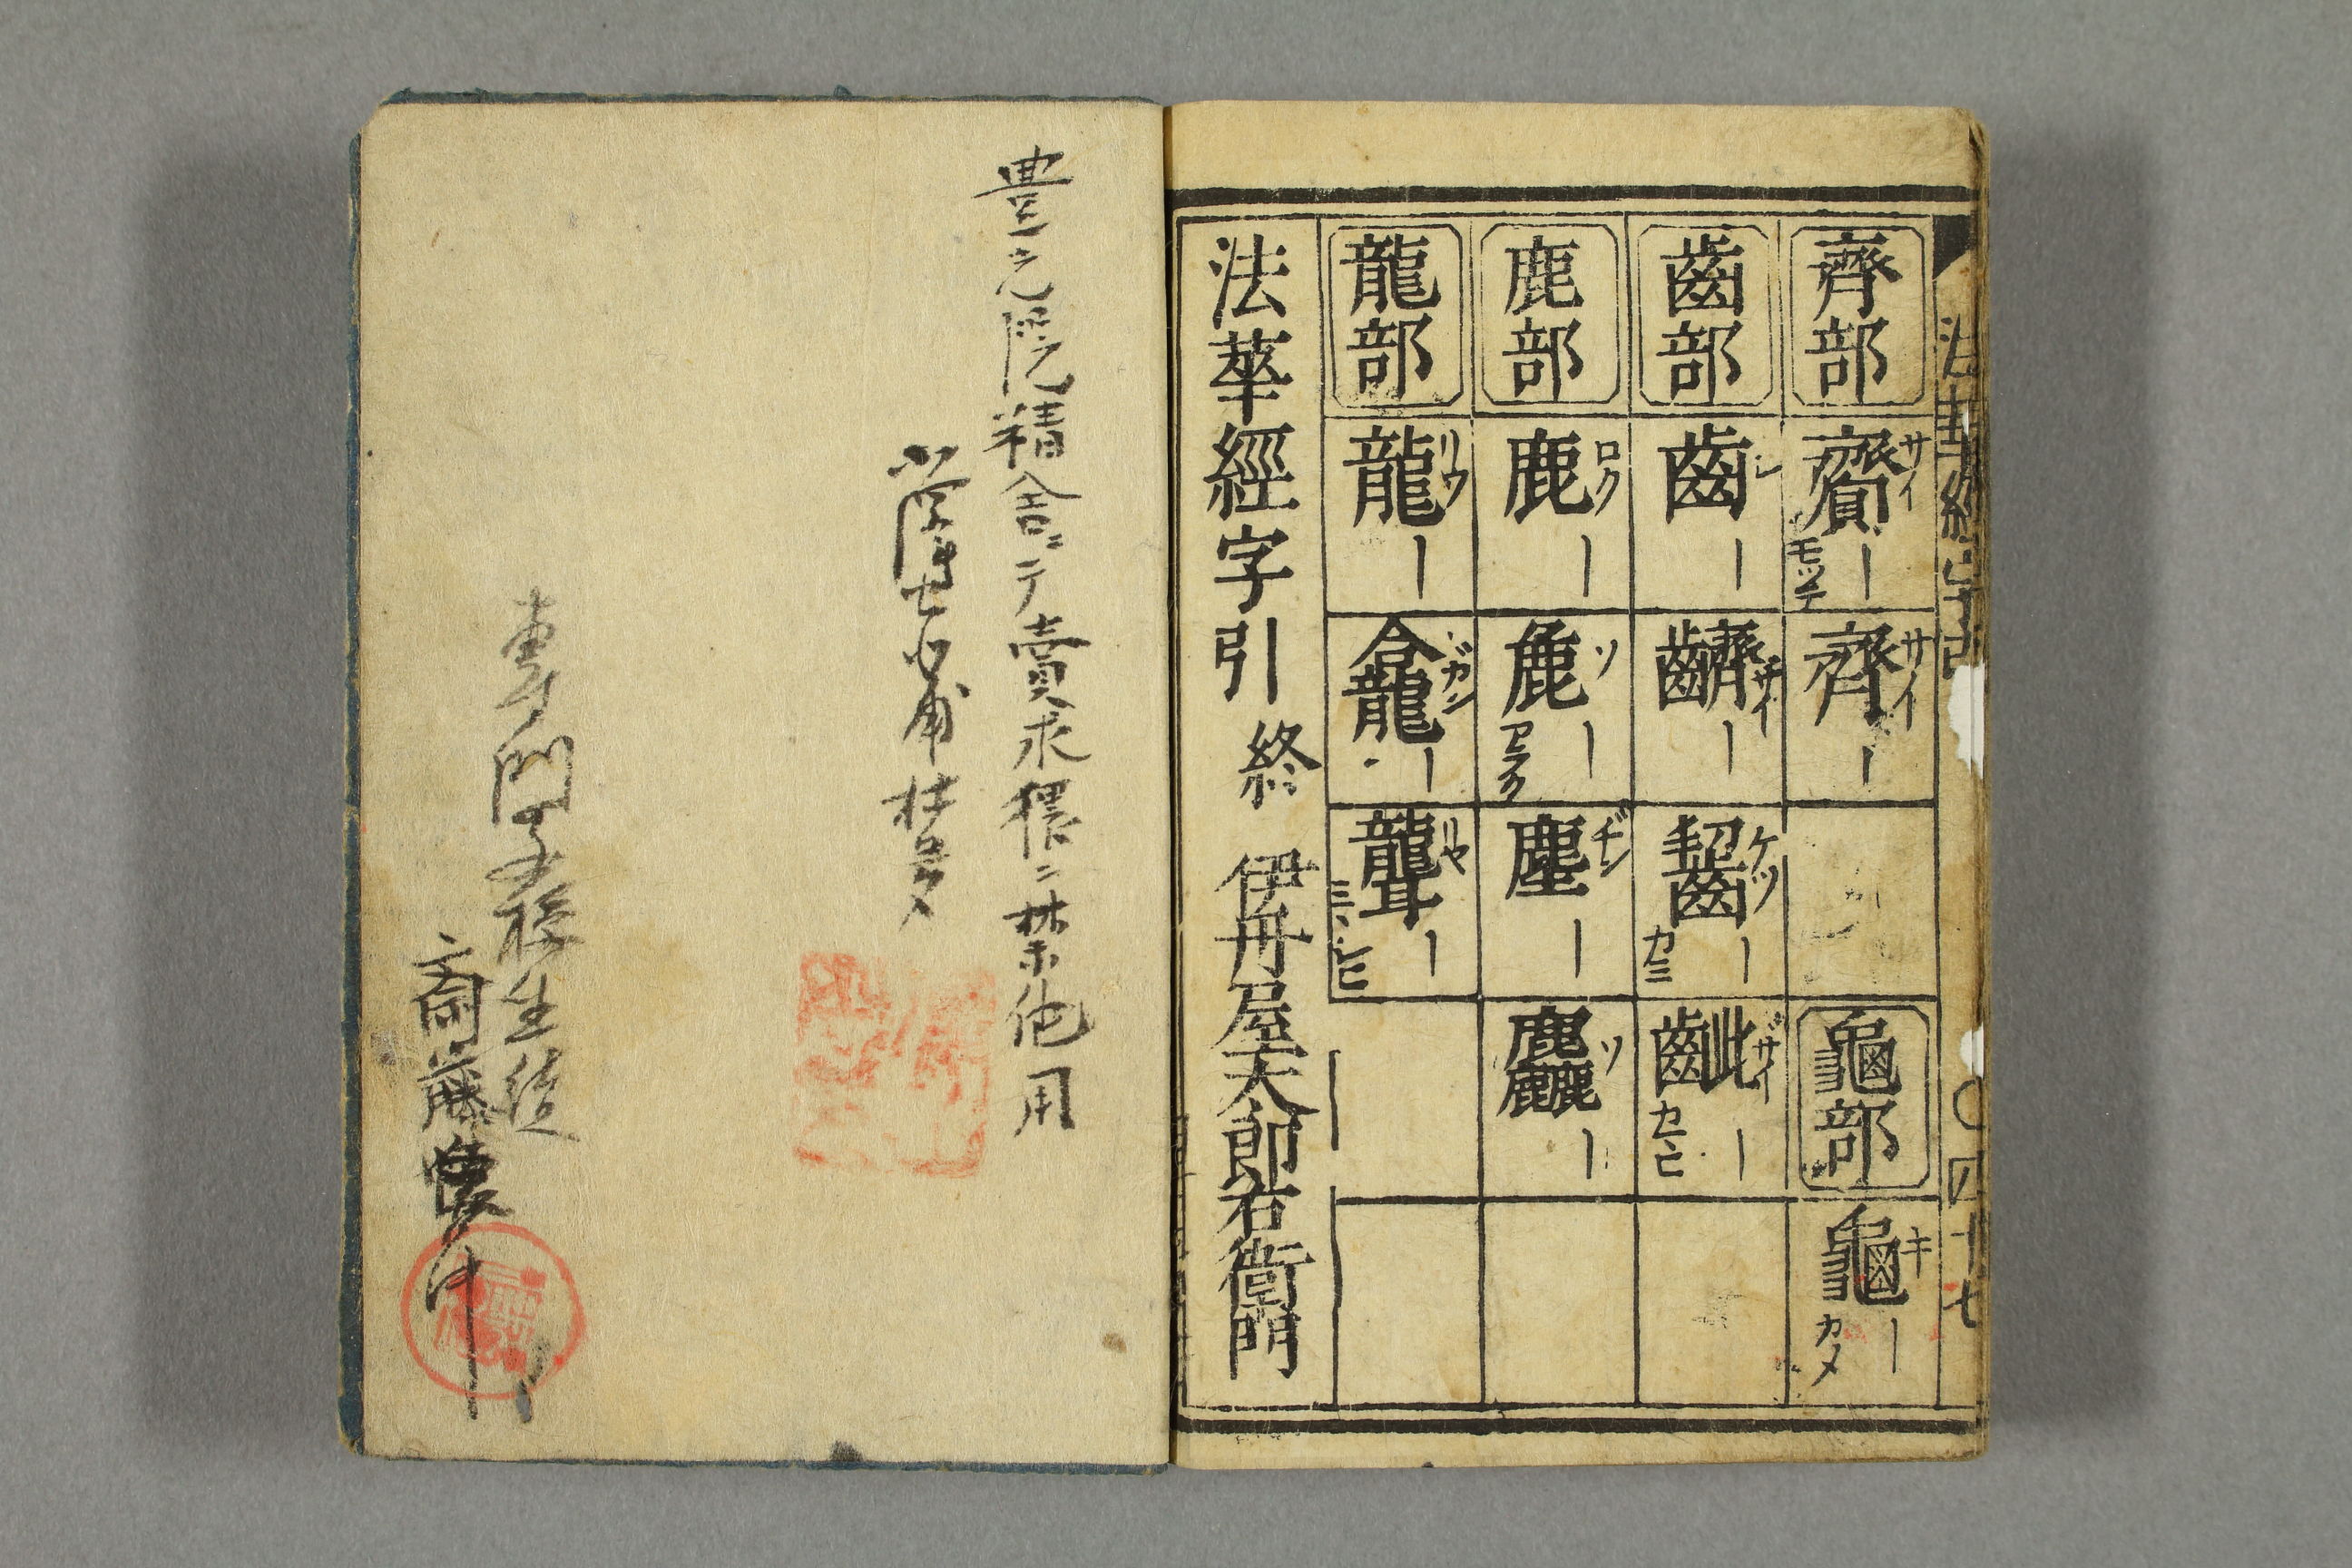 法華經字引
〇四十七
齊部
齎 サイ モツテ
齊 サイ
龜部
龜 キ カメ
齒部
齒 シ
齊齒 サイ
齧 ケツ カミ
齜 ザイ カミ
鹿部
鹿 ロク
麁 ソ アラク
塵 ヂン
麤 ソ
龍部
龍 リウ
龕 ガン
聾 リヤ ミヽシヒ
法華經字引終 伊丹屋太郎右衞門
豊之院精舎ニテ賣求猥ニ禁他用
専門学校生徒
斎藤